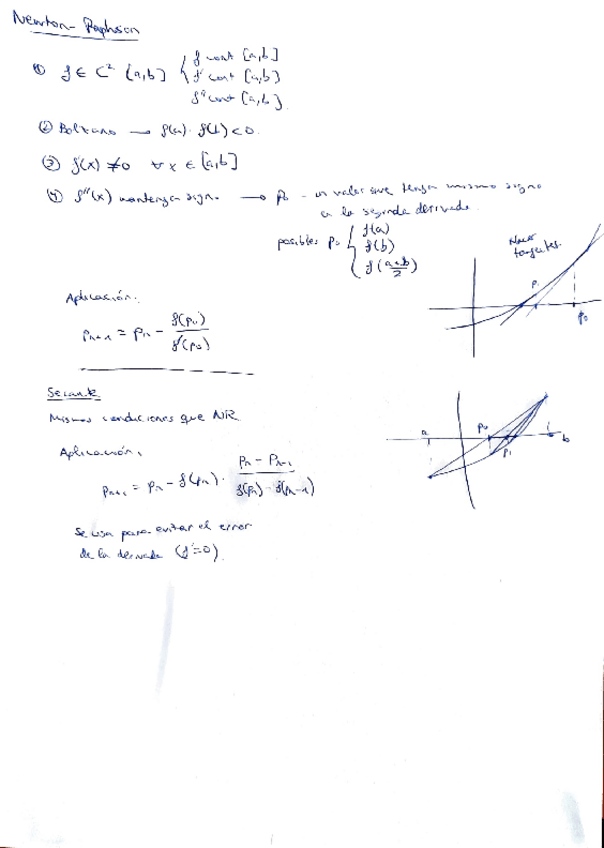 Newton-Raphson
① f ∈ C² [a,b] { f cont [a,b]
f' cont [a,b]
f'' cont [a,b]
② Bolzano → f(a) · f(b) < 0
③ f'(x) ≠ 0 ∀ x ∈ [a,b]
④ f''(x) mantenga signo → p₀ - un valor que tenga mismo signo
a la segunda derivada
posibles p₀ { f(a)
f(b)
f(a+b/2)
tangentes.
p₁
p₀
Aplicación:
pₙ₊₁ = pₙ - f(pₙ)/f'(pₙ)
Secante
Mismas condiciones que NR
Aplicación:
pₙ₊₁ = pₙ - f(pₙ) · (pₙ - pₙ₋₁)/(f(pₙ) - f(pₙ₋₁))
a
p₀
p₁
b
Se usa para evitar el error
de la derivada (f'=0).